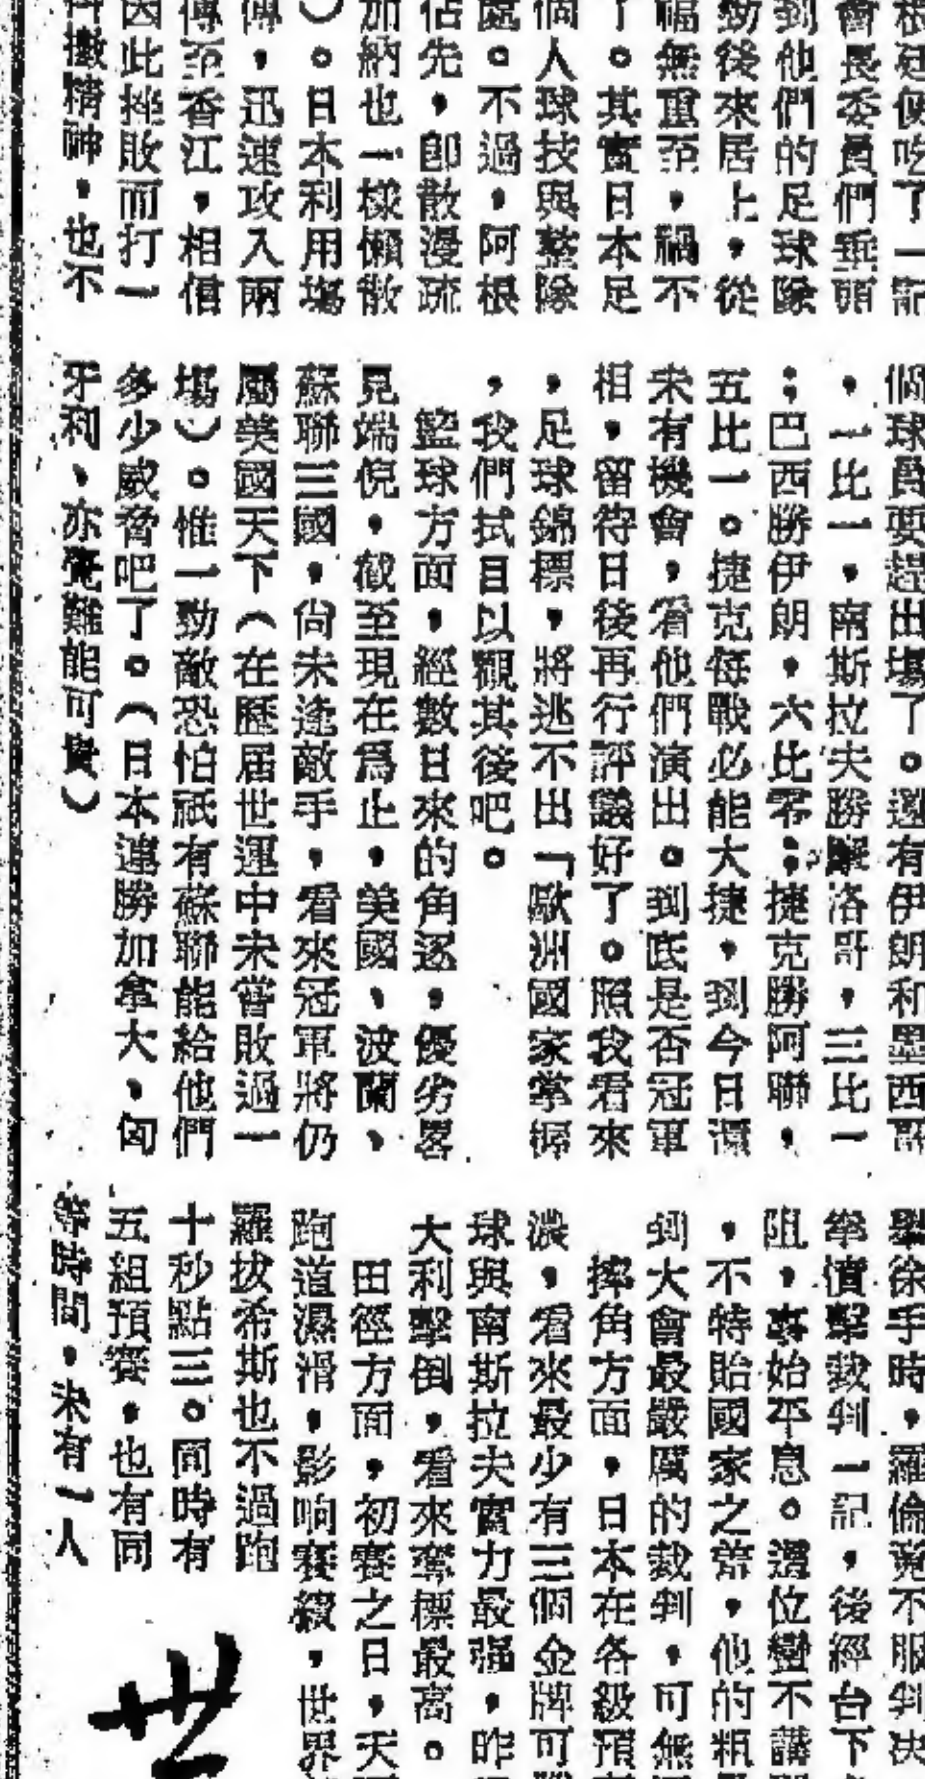 根廷便吃了一記
會長委員們垂頭
到他們的足球隊
勁後來居上，從
福無重至，禍不
了。其實日本足
個人球技與整隊
處。不過，阿根
佔先，卽散漫疏
加納也一樣懶散
）。日本利用塲
，迅速攻入兩
傳至香江，相信
因此挫敗而打一
擻精神，也不
個球員要趕出塲了。還有伊朗和墨西哥
，一比一，南斯拉夫勝摩洛哥，三比一
；巴西勝伊朗，六比零；捷克勝阿聯，
五比一。捷克每戰必能大捷，到今日還
未有機會，看他們演出。到底是否冠軍
相，留待日後再行評議好了。照我看來
，足球錦標，將逃不出「歐洲國家掌握
，我們拭目以觀其後吧。
籃球方面，經數日來的角逐，優劣畧
見端倪，截至現在爲止，美國、波蘭、
蘇聯三國，尙未逢敵手，看來冠軍將仍
屬美國天下（在歷居世運中未嘗敗過一
塲）。惟一勁敵恐怕祇有蘇聯能給他們
多少威脅吧了。（日本連勝加拿大、匈
牙利、亦覺難能可貴）
舉徐手時，羅倫竟不服判决
拳憤擊裁判一記，後經台下
阻，事始平息。這位蠻不講
，不特貽國家之羞，他的粗
到大會最嚴厲的裁判，可無
摔角方面，日本在各級預
濃，看來最少有三個金牌可
球與南斯拉夫實力最强，昨
大利擊倒，看來奪標最高。
田徑方面，初賽之日，天
跑道濕滑，影响賽績，世界
羅拔希斯也不過跑
十秒點三。同時有
五組預賽，也有同
等時間，未有一人
世